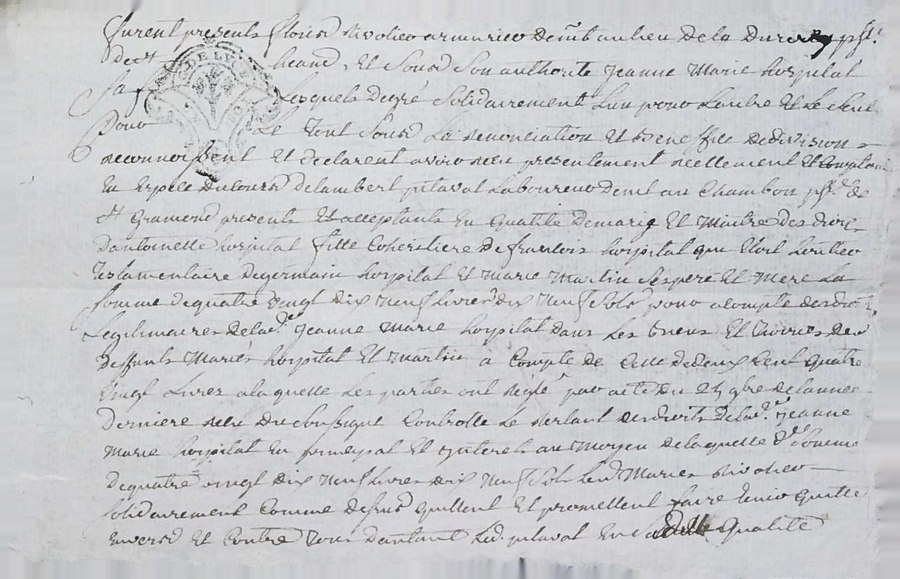 furent presents fleurs Rivolier armurier demt au lieu de la Durerey psse
de St heand, Et Sous Son authorité jeanne Marie hospital
Sa fe Lesquels degré Solidairement L'un pour L'autre Et Le Seul
pour Le Tout Sous La Renonciation Et Benefice de division
Reconnoissent Et declarent avoir Reçu presentement Reellement Et Comptant
En Espece du Cours de lambert pitaval Laboureur demt au Chambon psse de
St Gramond present Et acceptants En qualité de mary Et Maitre des droits
D'antoinette hospital fille Coheritiere de françois hospital qui Etoit heritier
Testamentaire de germain hospital Et Marie Martin Ses pere Et Mere La
Somme de quatre vingt dix Neuf livres dix Neuf Sols pour acompte des droits
Legitimaires de lade jeanne Marie hospital dans Les Biens Et hoiries des
deffunts Mariés hospital Et Martin a Compte de Celle de deux Cent quatre
vingt Livres a laquelle Les parties ont Reglé par acte du 25 9bre de l'année
Derniere Reçu du Soussigné Controllé Le Restant des droits de lade jeanne
Marie hospital En principal Et interets au Moyen de laquelle de Somme
de quatre vingt dix Neuf Livres dix Neuf Sols Lesd Mariés Rivolier
Solidairement Comme dessus quittent Et promettent faire tenir quitte
Envers Et Contre Tous d'autant Led pitaval En Qualité